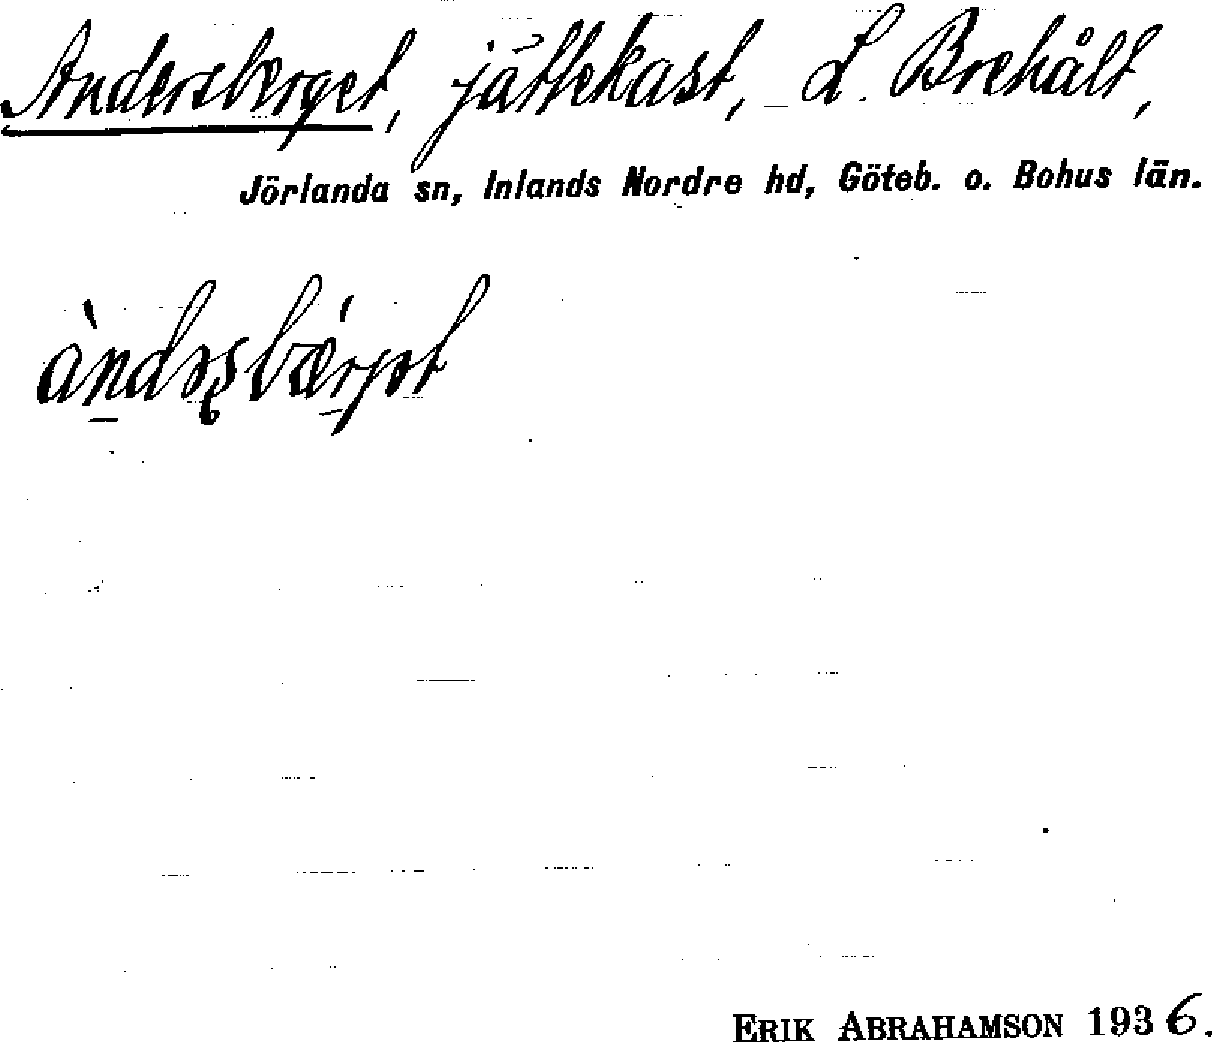 Andersberget, jättekast, L. Brehålt,
Jörlanda sn, Inlands Nordre hd, Göteb. o. Bohus län.
ERIK ABRAHAMSON 1936.